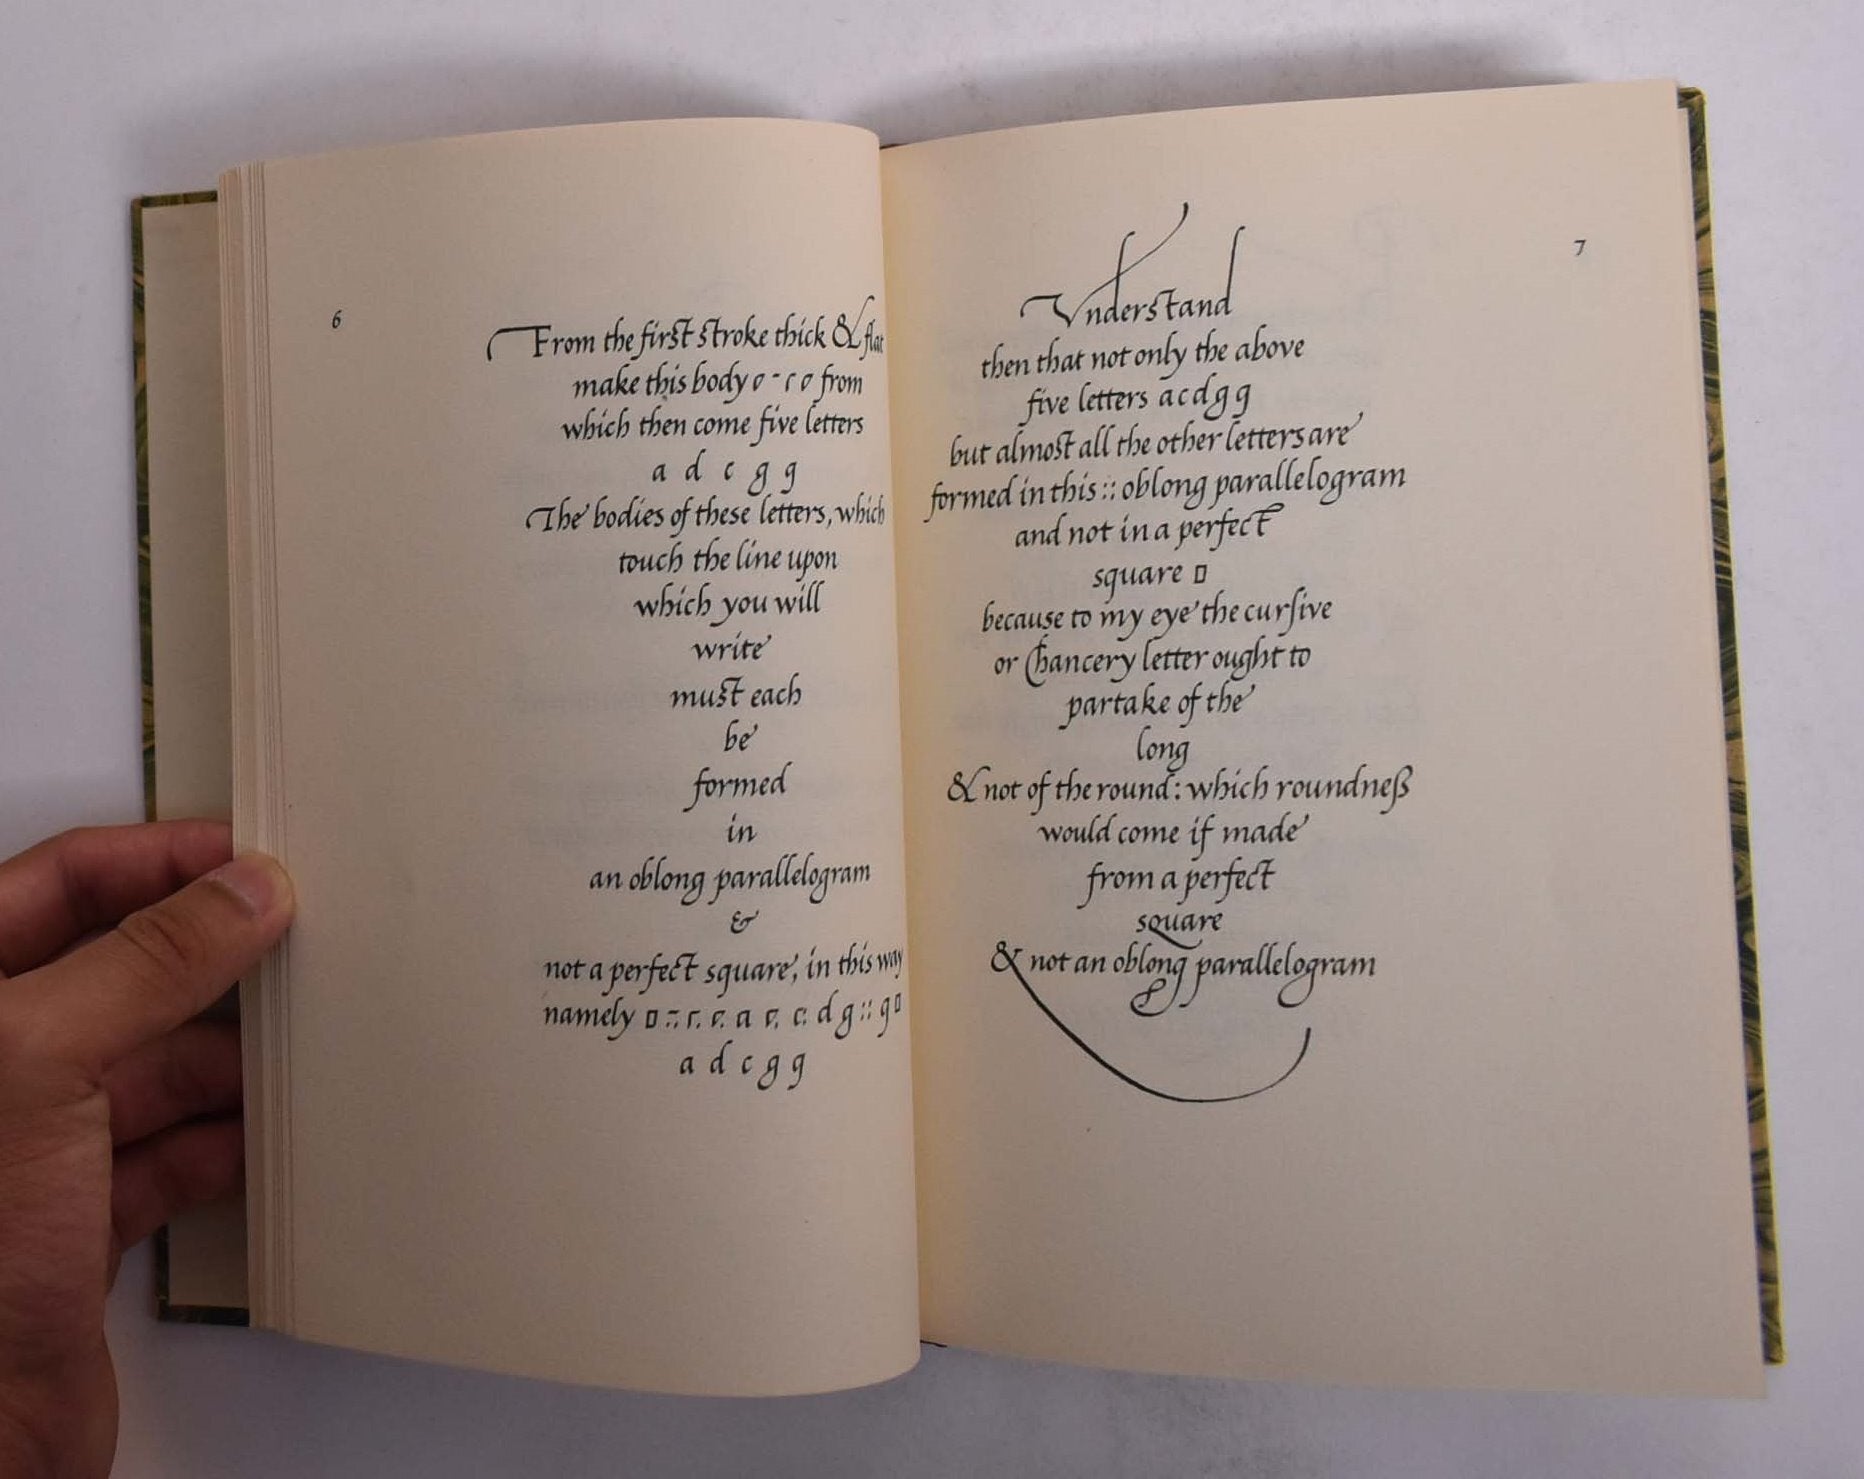 6
From the first stroke thick & flat
make this body o - c o from
which then come five letters
a d c g q
The bodies of these letters, which
touch the line upon
which you will
write
must each
be
formed
in
an oblong parallelogram
&
not a perfect square, in this way
namely
a d c g q
7
Vnderstand
then that not only the above
five letters a c d g q
but almost all the other letters are
formed in this :: oblong parallelogram
and not in a perfect
square ▯
because to my eye the curſive
or Chancery letter ought to
partake of the
long
& not of the round: which roundneß
would come if made
from a perfect
square
& not an oblong parallelogram